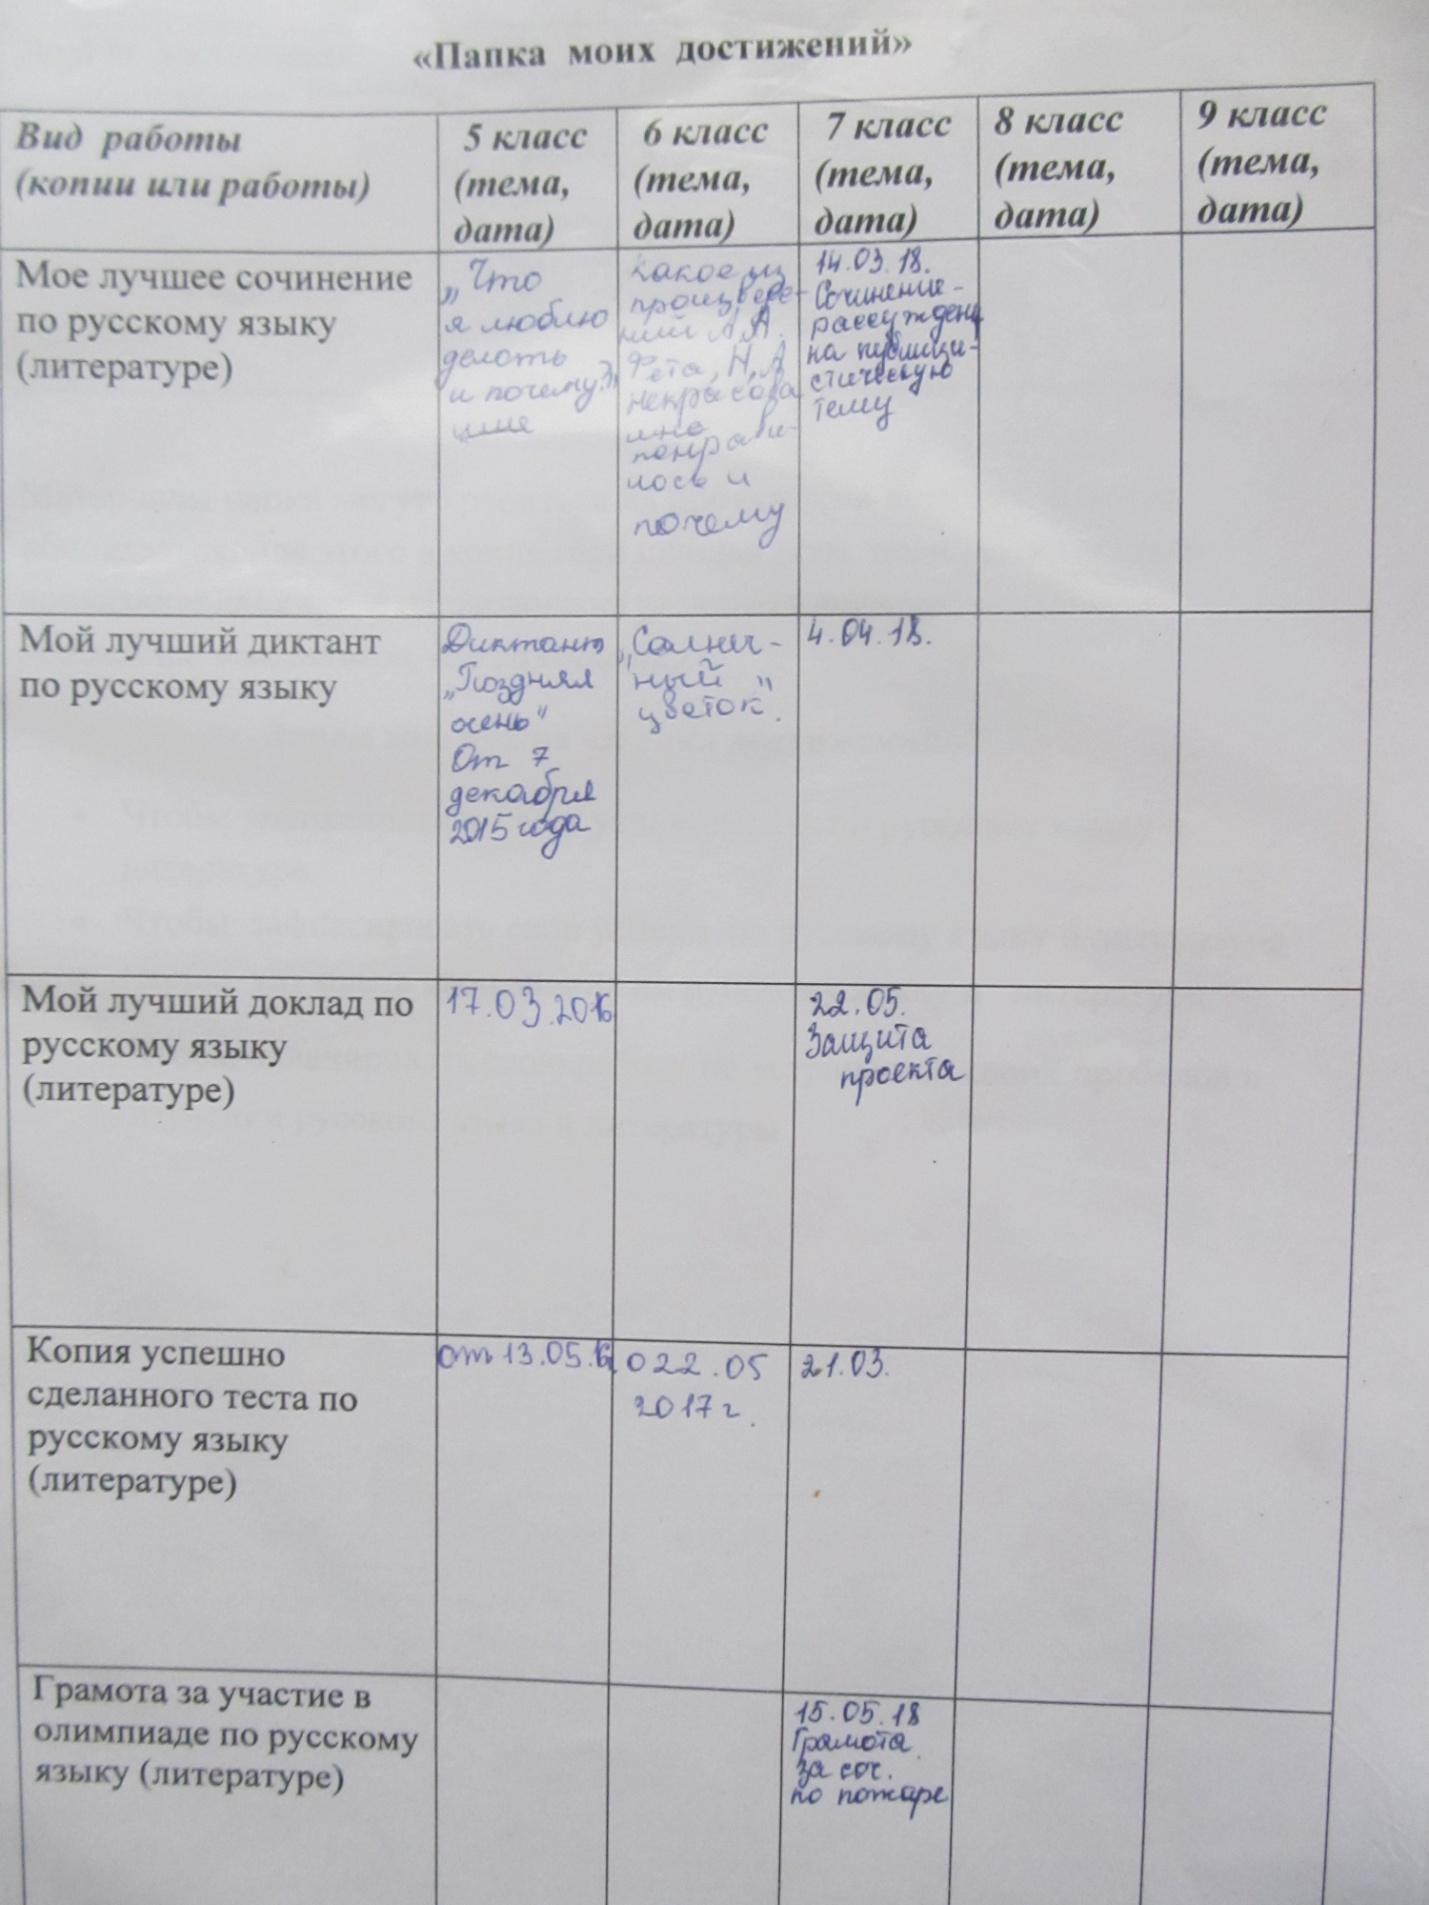 «Папка моих достижений»
Вид работы
(копии или работы)
5 класс
(тема,
дата)
6 класс
(тема,
дата)
7 класс
(тема,
дата)
8 класс
(тема,
дата)
9 класс
(тема,
дата)
Мое лучшее сочинение
по русскому языку
(литературе)
„Что
я люблю
делать
и почему?"
Какое из
произведе-
ний А.А.
Фета, Н,А
некрасова
мне
понрави-
лось и
почему
14.03.18.
Сочинение-
рассужден
на публици-
стическую
тему
Мой лучший диктант
по русскому языку
Диктант
„Поздняя
осень"
От 7
декабря
2015 года
„Солнеч-
ный
цветок".
4.04.18.
Мой лучший доклад по
русскому языку
(литературе)
17.03.2016
22.05.
Защита
проекта
Копия успешно
сделанного теста по
русскому языку
(литературе)
от 13.05.16
022.05
2017 г.
21.03.
Грамота за участие в
олимпиаде по русскому
языку (литературе)
15.05.18
Грамота
за соч.
по пожаре